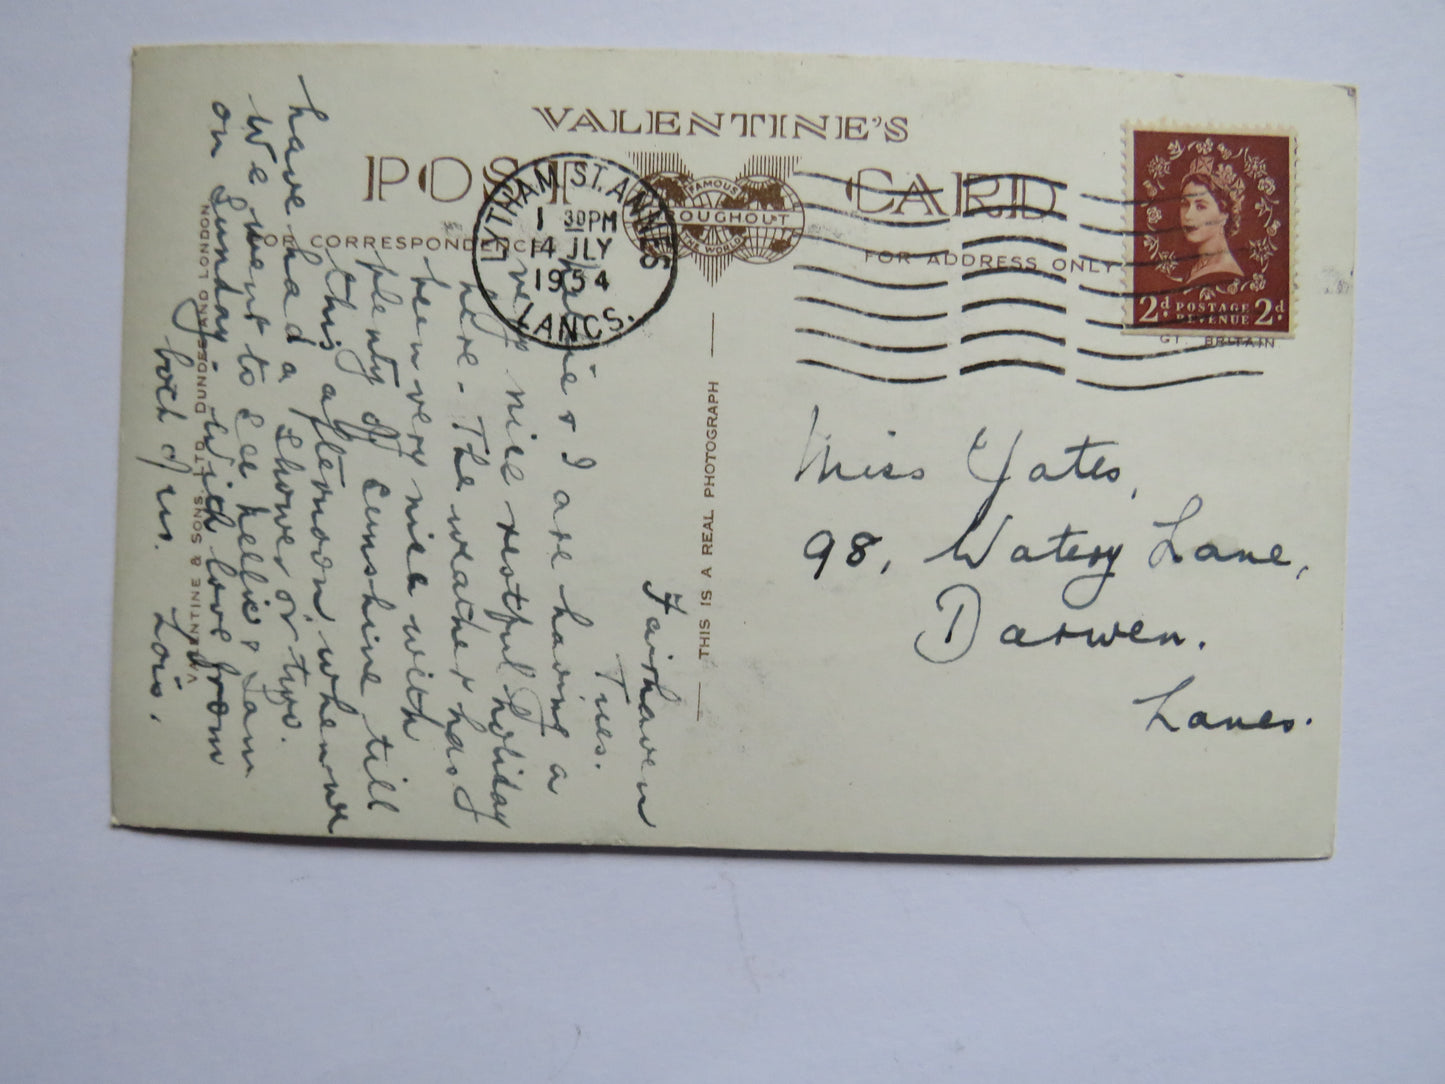 VALENTINE'S
POST CARD
FAMOUS
THROUGHOUT
THE WORLD
FOR CORRESPONDENCE
FOR ADDRESS ONLY
LYTHAM ST. ANNES
1 30PM
14 JLY
1954
LANCS.
2d. POSTAGE REVENUE 2d.
GT. BRITAIN
THIS IS A REAL PHOTOGRAPH
VALENTINE & SONS, LTD. DUNDEE AND LONDON
Fairhaven
Tues.
& I are having a
very nice restful holiday
here. The weather has
been very nice with
plenty of sunshine till
this afternoon, when we
have had a shower or two.
We went to see Nellie & Sam
on Sunday. With love from
both of us. Lois.
Miss Yates,
98, Watery Lane,
Darwen.
Lancs.